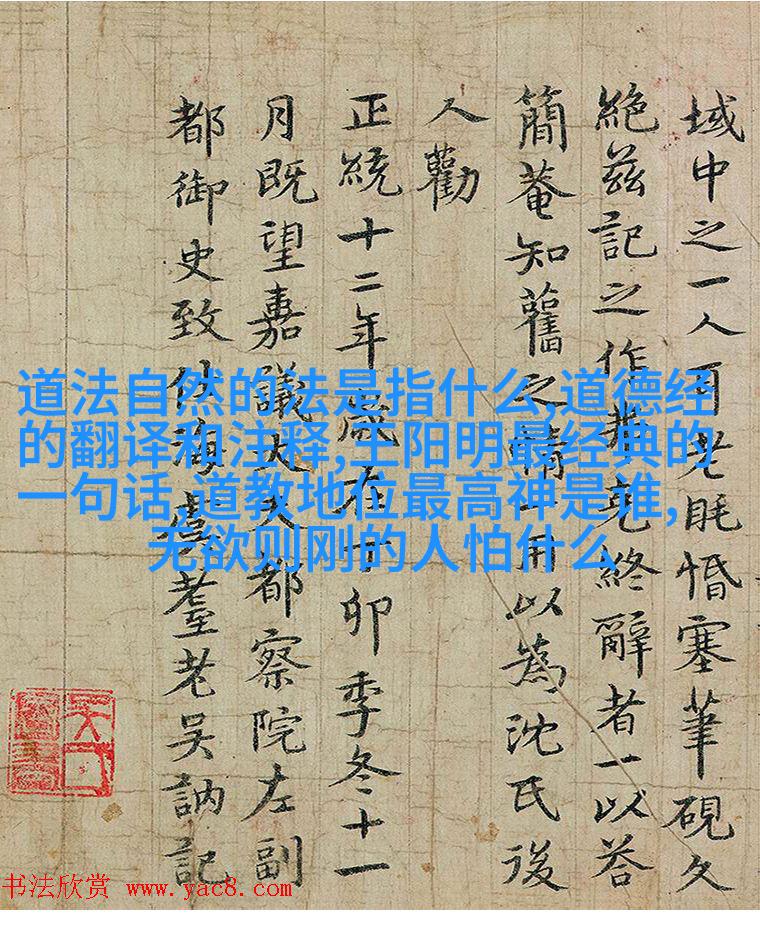 域中之一人而老眊惛塞筆硯久
絶茲記之作弗克終辭者一以荅
簡菴知舊之情一用以為沈氏後
人勸
正統十二年歲在丁卯季冬十一
月既望嘉議大夫都察院左副
都御史致仕海虞耋老吳訥記
道法自然的法是指什么,道德经
的翻译和注释,王阳明最经典的
一句话,道教地位最高神是谁,
无欲则刚的人怕什么
书法欣赏 www.yac8.com